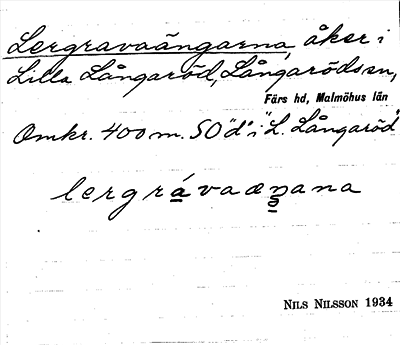 Lergravaängarna, åker i
Lilla Långaröd, Långaröds sn,
Färs hd, Malmöhus län
Omkr. 400 m. SO "d" i "L. Långaröd"
lergrávaæŋana
NILS NILSSON 1934